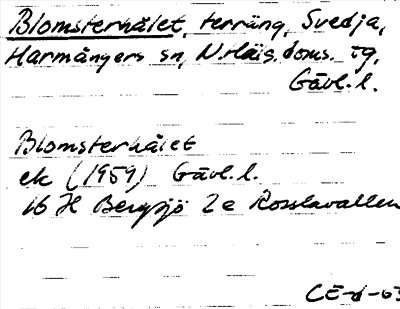 Blomsterhålet, terräng, Svedja,
Harmångers sn, N. Häls. doms. tg,
Gävl. l.
Blomsterhålet
ek (1959) Gävl. l.
16 H Bergsjö 2e Rosslavallen
CE-d-63